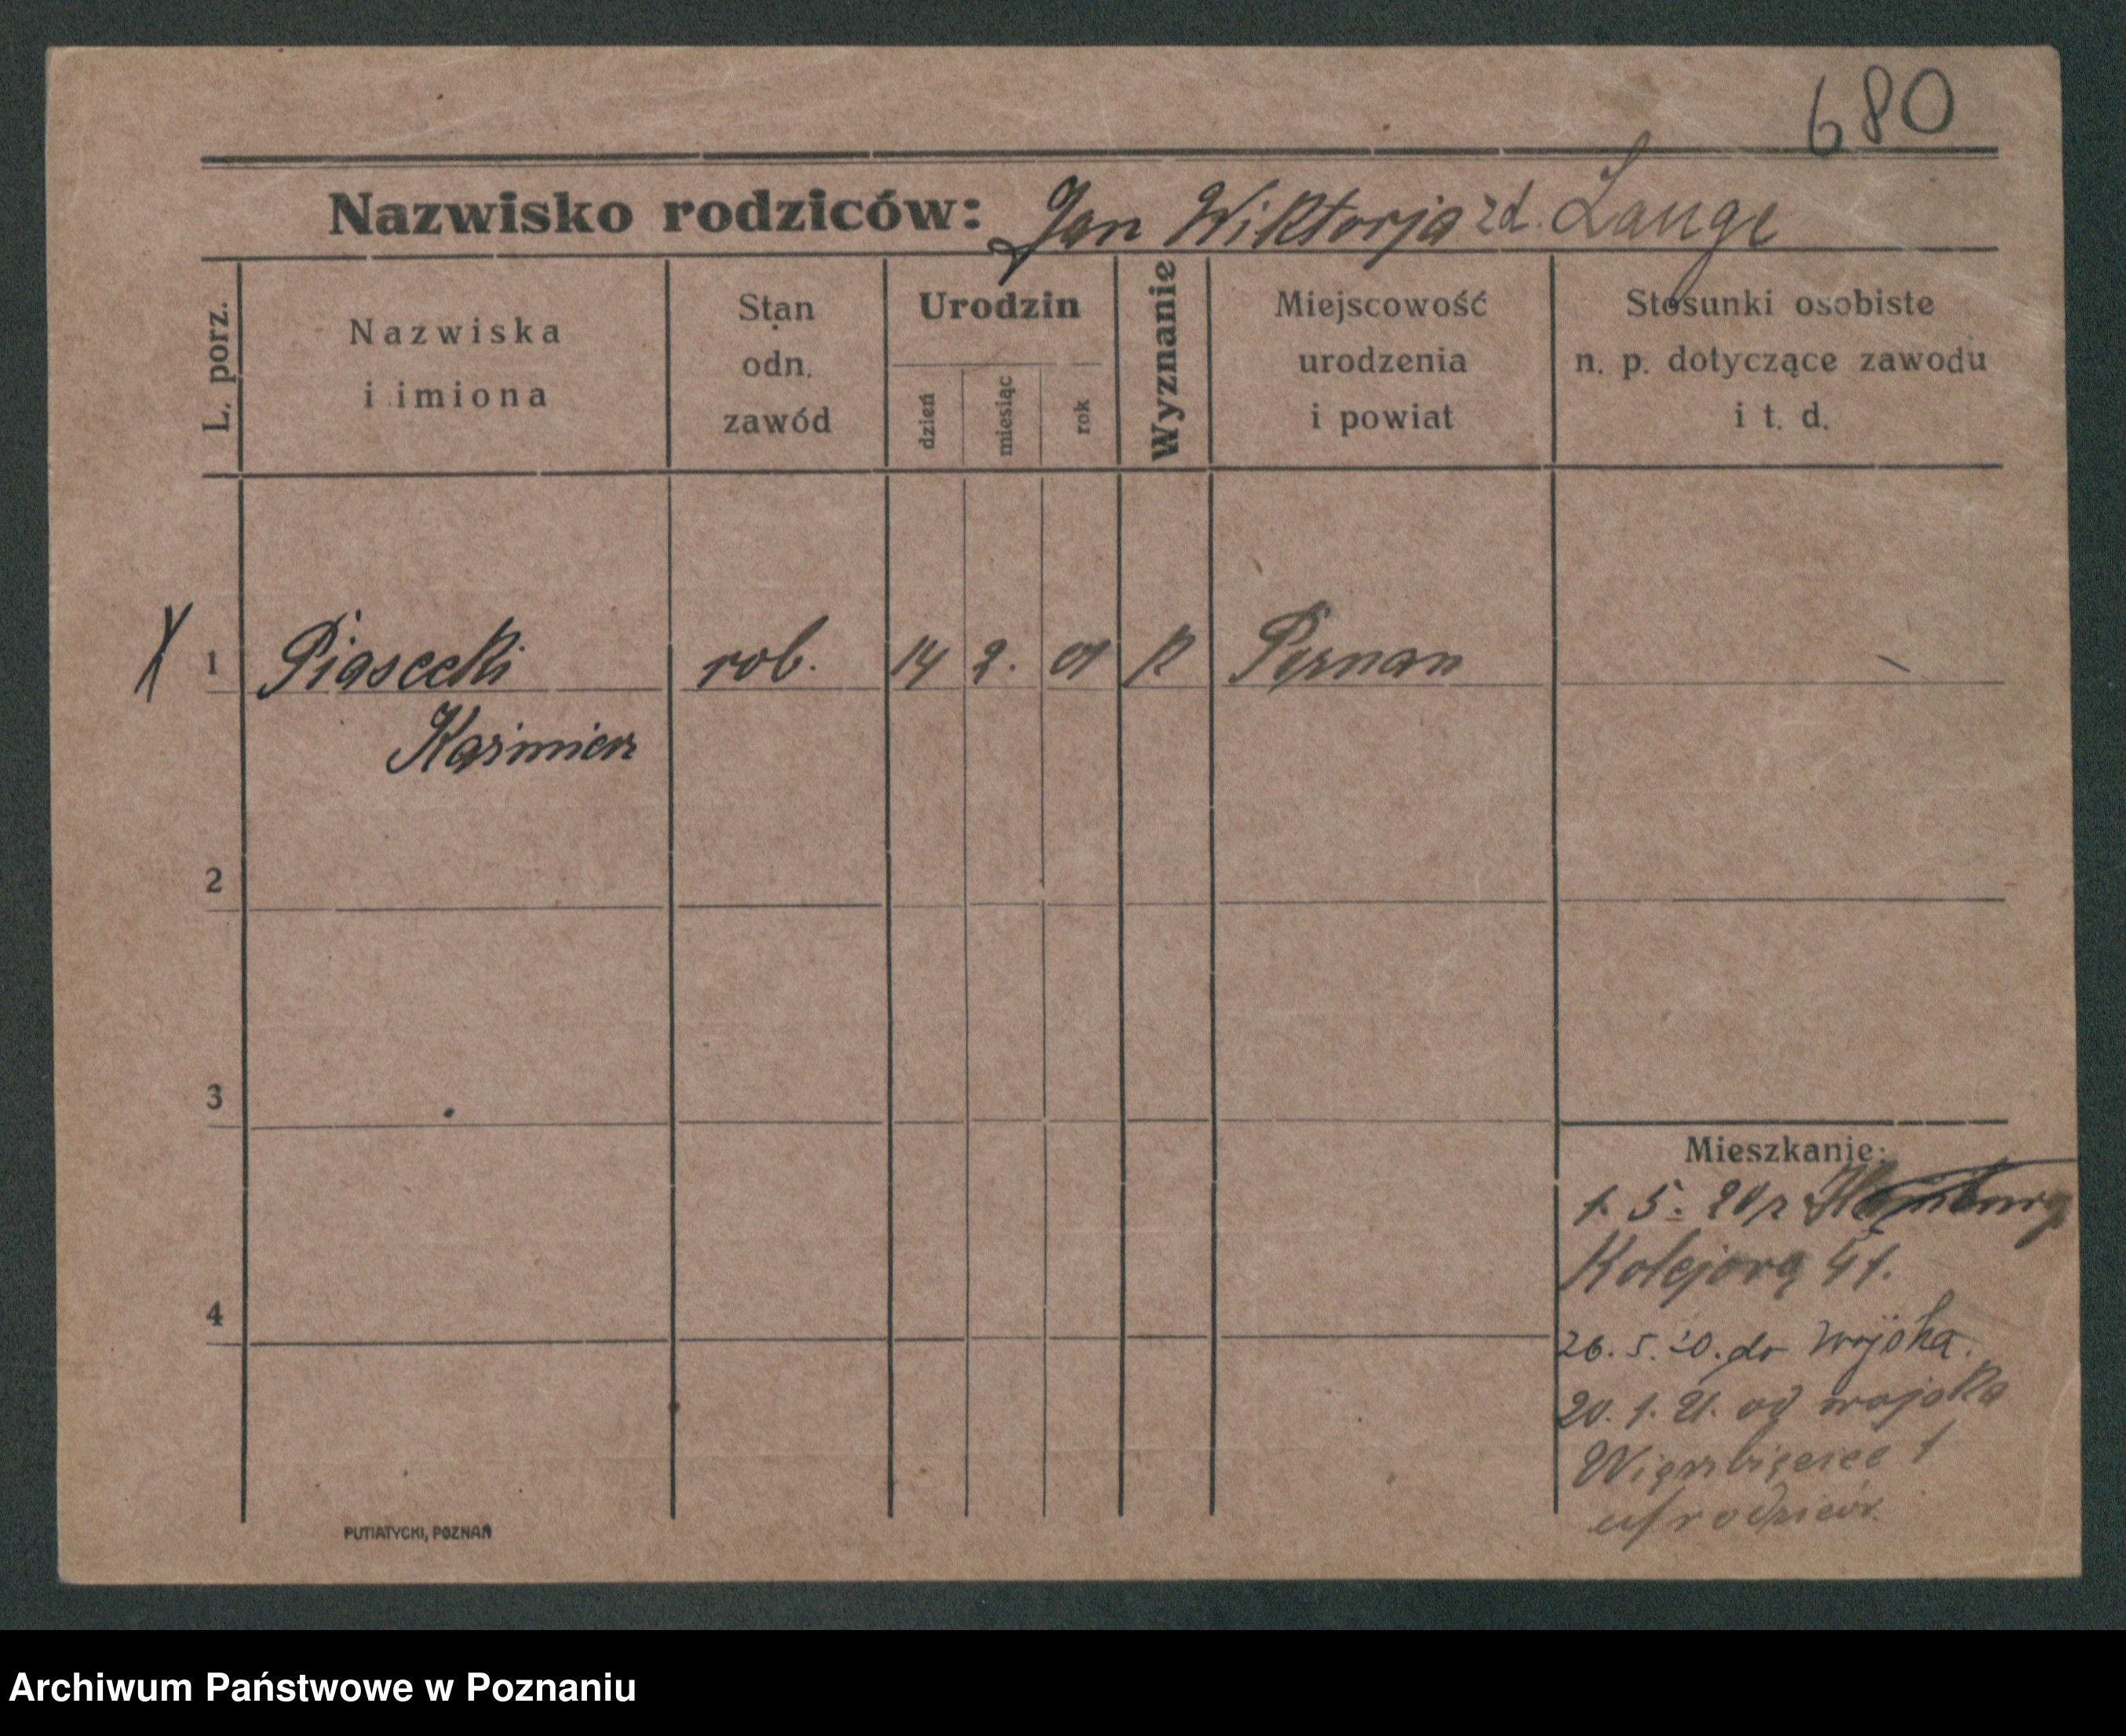 680
Nazwisko rodziców: Jan Wiktorja zd. Lange
L. porz.
Nazwiska
i imiona
Stan
odn.
zawód
Urodzin
dzień
miesiąc
rok
Wyznanie
Miejscowość
urodzenia
i powiat
Stosunki osobiste
n. p. dotyczące zawodu
i t. d.
X 1 Piasecki rob. 14 2. 01 K Poznan
Kazimierz
2
3
4
Mieszkanie:
1. 5. 20 z Hamburg
Kolejowa 41.
26. 5. 20. do Wojska.
20. 1. 21. od wojska
Wierzbięcice 1
u/rodziców.
PUTIATYCKI, POZNAŃ
Archiwum Państwowe w Poznaniu